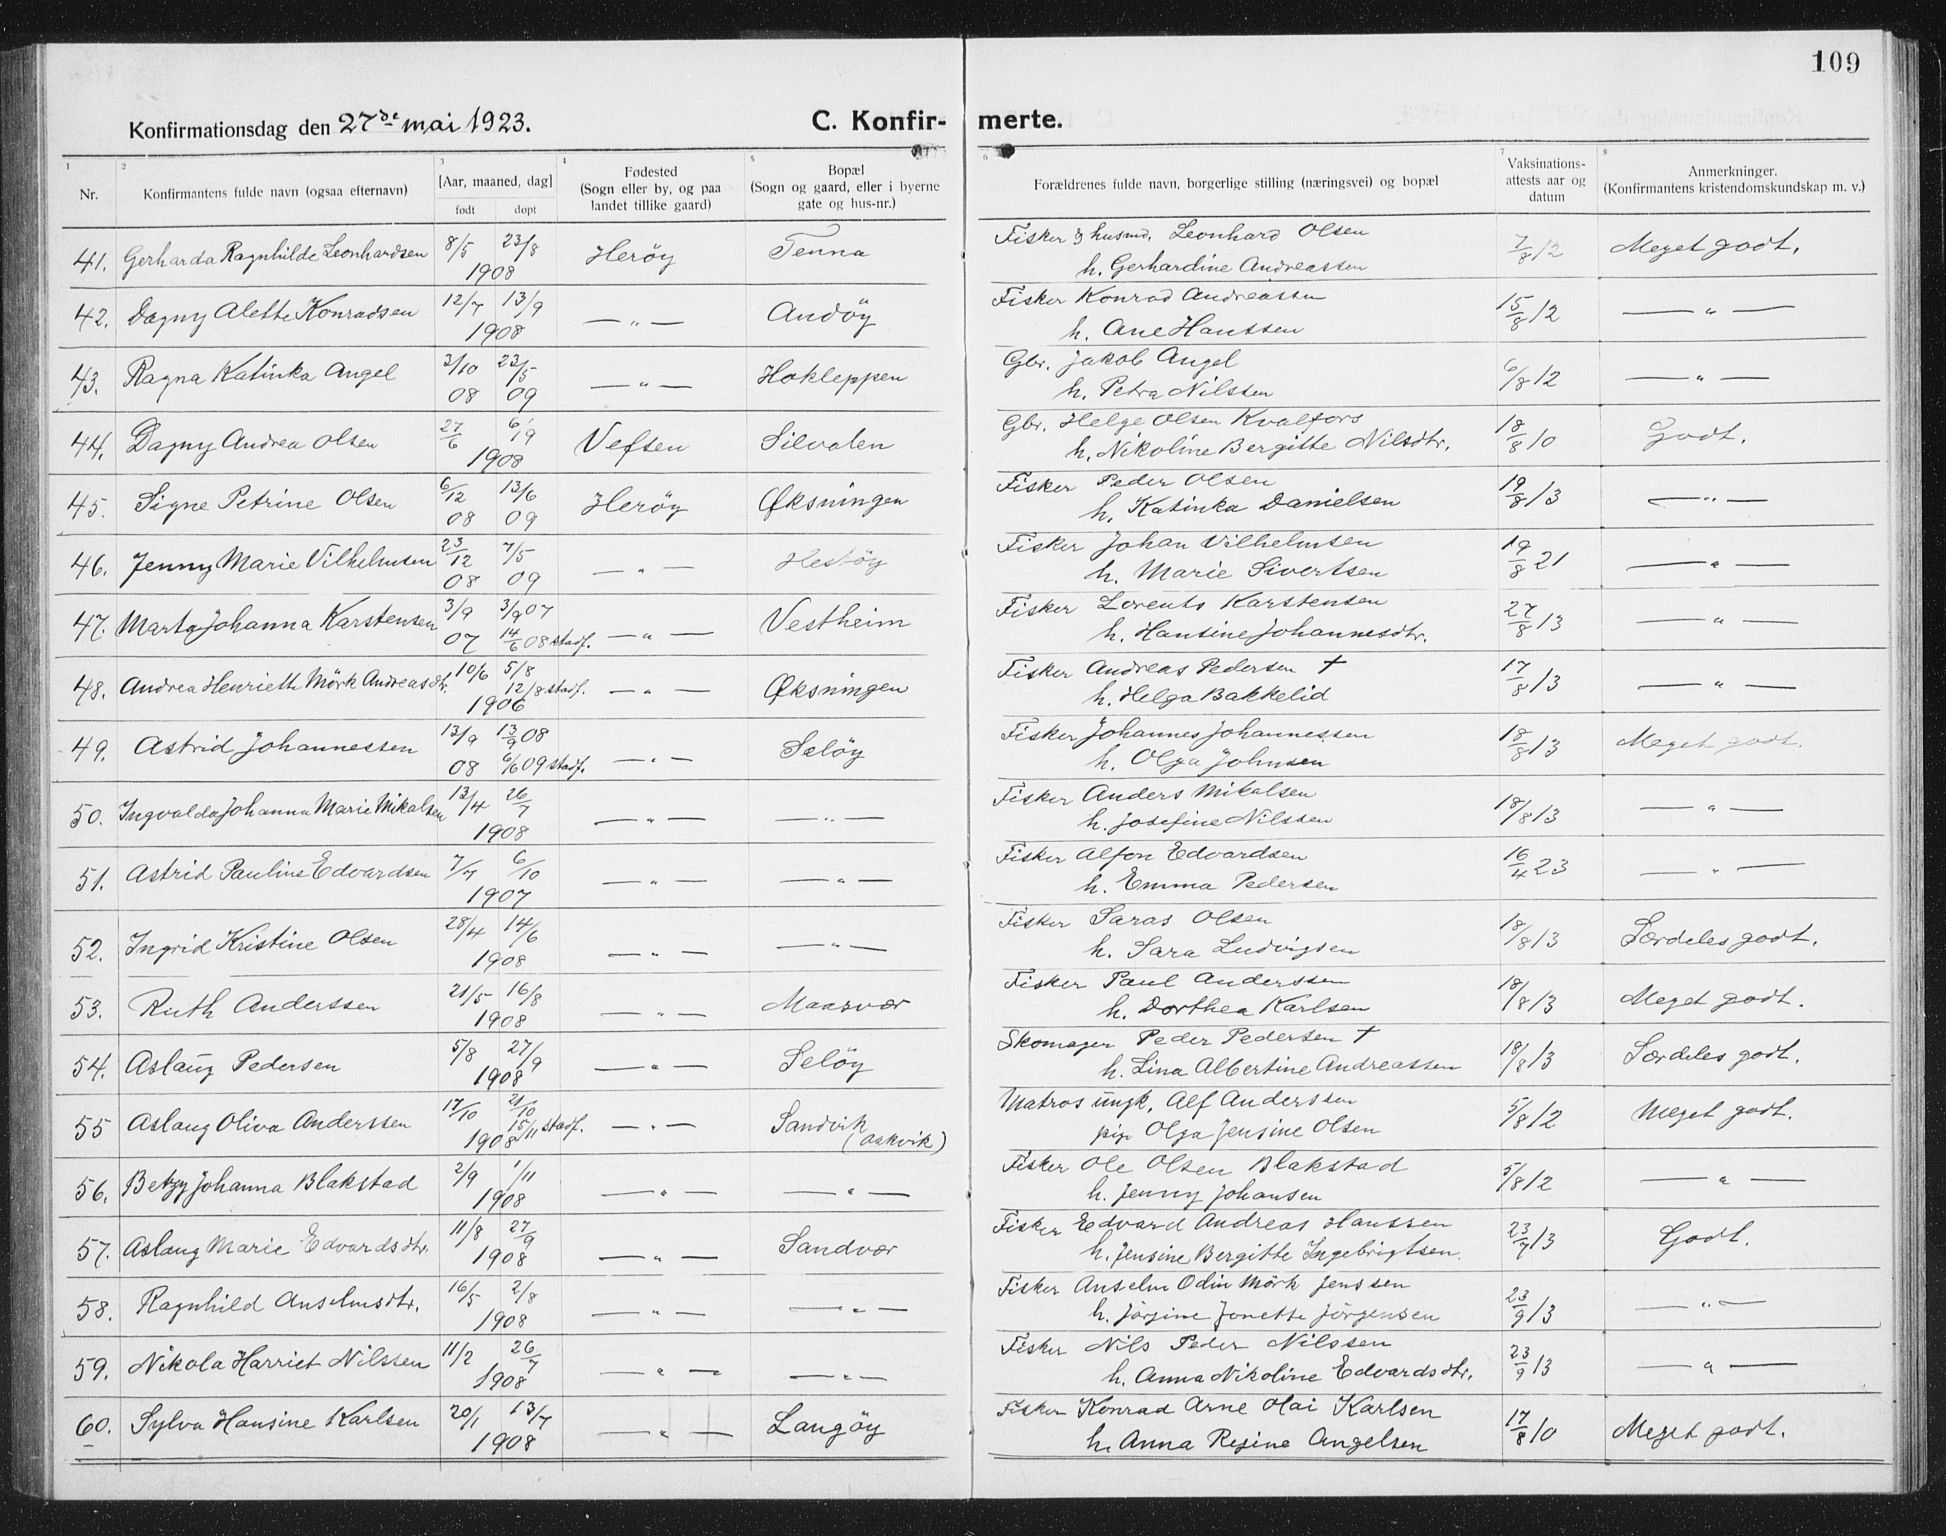 109
Konfirmationsdag den 27de mai 1923. C. Konfir- merte.
1 2 3 4 5 6 7 8
Nr. Konfirmantens fulde navn (ogsaa efternavn) [Aar, maaned, dag] født døpt Fødested (Sogn eller by, og paa landet tillike gaard) Bopæl (Sogn og gaard, eller i byerne gate og hus-nr.) Forældrenes fulde navn, borgerlige stilling (næringsvei) og bopæl Vaksinations-attests aar og datum Anmerkninger. (Konfirmantens kristendomskundskap m. v.)
41. Gerharda Ragnhilde Leonhardsen 8/5 23/8 1908 Herøy Tenna Fisker & husmd. Leonhard Olsen 7/8 12 Meget godt.
h. Gerhardine Andreassen
42. Dagny Alette Konradsen 12/7 13/9 1908 — " — Andöy Fisker Konrad Andreassen 15/8 12 — " —
h. Ane Hanssen
43. Ragna Katinka Angel 3/10 08 23/5 09 — " — Hokleppen Gbr. Jakob Angel 6/8 12 — " —
h. Petra Nilssen
44. Dagny Andrea Olsen 27/6 6/9 1908 Vefsen Silvalen Gbr. Helge Olsen Kvalfors 18/8 10 Godt.
h. Nikoline Bergitte Nilsdtr.
45. Signe Petrine Olsen 6/12 08 13/6 09 Herøy Øksningen Fisker Peder Olsen 19/8 13 — " —
h. Katinka Danielsen
46. Jenny Marie Vilhelmsen 23/12 08 7/5 09 — " — Hestöy Fisker Johan Vilhelmsen 19/8 21 — " —
h. Marie Sivertsen
47. Marta Johanna Karstensen 3/9 07 3/9 07 14/6 08 stadf. — " — Vestheim Fisker Lorents Karstensen 27/8 13 — " —
h. Hansine Johannesdtr.
48. Andrea Henriette Mörk Andreasdtr. 10/6 5/8 12/8 stadf. 1906 — " — Øksningen Fisker Andreas Pedersen † 17/8 13 — " —
h. Helga Bakkelid
49. Astrid Johannessen 13/9 08 13/9 08 6/6 09 stadf. — " — Selöy Fisker Johannes Johannessen 18/8 13 Meget godt.
h. Olga Johnsen
50. Ingvalda Johanna Marie Mikalsen 13/4 26/7 1908 — " — — " — Fisker Anders Mikalsen 18/8 13 — " —
h. Josefine Nilssen
51. Astrid Pauline Edvardsen 7/7 6/10 1907 — " — — " — Fisker Alfon Edvardsen 16/4 23 — " —
h. Emma Pedersen
52. Ingrid Kristine Olsen 28/4 14/6 1908 — " — — " — Fisker Saras Olsen 18/8 13 Særdeles godt.
h. Sara Ludvigsen
53. Ruth Anderssen 21/5 16/8 1908 — " — Maasvær Fisker Paul Anderssen 18/8 13 Meget godt.
h. Dorthea Karlsen
54. Aslaug Pedersen 5/8 27/9 1908 — " — Selöy Skomager Peder Pedersen † 18/8 13 Særdeles godt.
h. Lina Albertine Andreassen
55 Aslaug Oliva Anderssen 17/10 21/10 15/11 stadf. 1908 — " — Sandvik (Aakvik) Matros ungk. Alf Anderssen 5/8 12 Meget godt.
pige Olga Jensine Olsen
56. Betzy Johanna Blakstad 2/9 1/11 1908 — " — — " — Fisker Ole Olsen Blakstad 5/8 12 — " —
h. Jenny Johansen
57. Aslaug Marie Edvardsdtr. 11/8 27/9 1908 — " — Sandvær Fisker Edvard Andreas Hanssen 23/7 13 Godt.
h. Jensine Bergitte Ingebrigtsen.
58. Ragnhild Anselmsdtr. 16/5 2/8 1908 — " — — " — Fisker Anselm Odin Mörk Jenssen 23/9 13 — " —
h. Jörgine Jonette Jörgensen
59. Nikola Harriet Nilssen 11/2 26/7 1908 — " — — " — Fisker Nils Peder Nilssen 23/9 13 — " —
h. Anna Nikoline Edvardsdtr.
60. Sylva Hansine Karlsen 20/1 13/7 1908 — " — Langöy Fisker Konrad Arne Hai Karlsen 17/8 10 Meget godt.
h. Anna Regine Angelsen